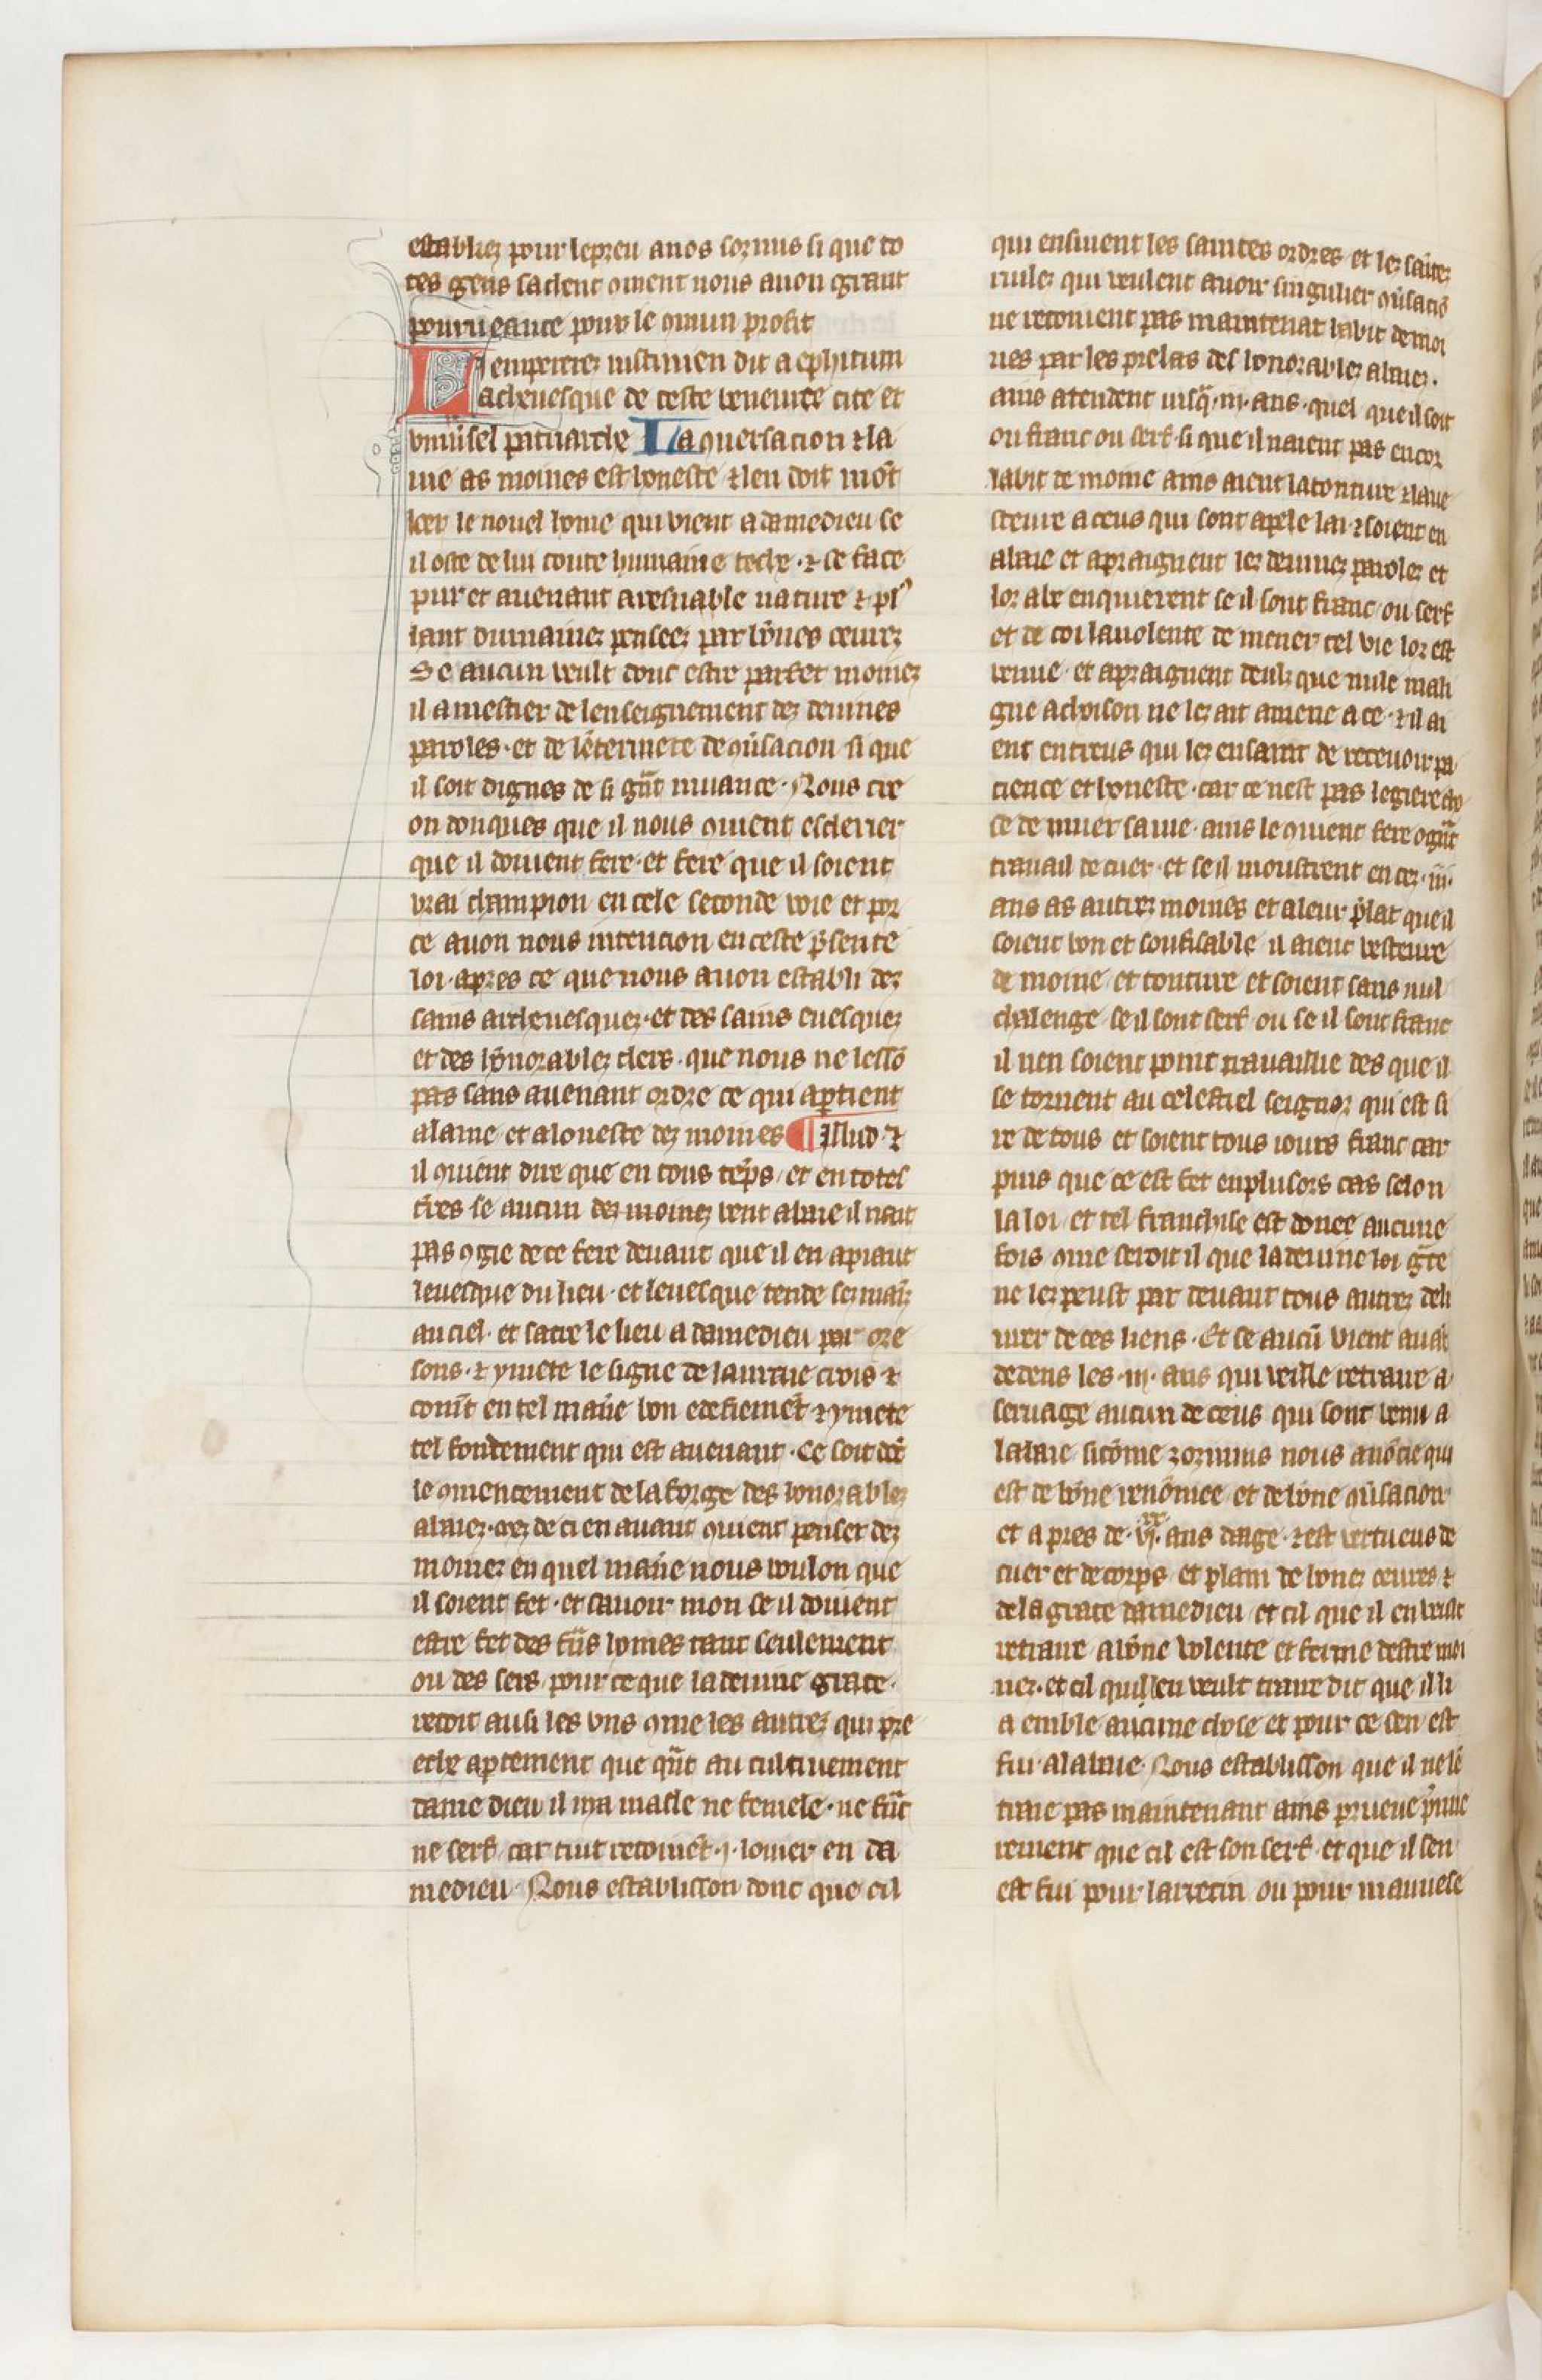 establiez pour le preu a nos sozmis si que to
tes gens sachent ꝯment nous auon grant
pourueance pour le ꝯmun profit
Li emperere iustinien dit a ephitum
archeuesque de ceste beneuree cite et
vniuersel patriarche La ꝯuersacion ⁊ la
uie as moines est honeste ⁊ len doit
le nouel home qui vient a damedieu se
il oste de lui toute humaine teche · ⁊ se face
pur et auenant a resnable nature ⁊ pl᷒
tant humainez penseez par bōnes œurez
Se aucun veult donc estre parfet moinez
il a mestier de lenseignement dez deuines
paroles · et de lētermete de ꝯu̾sacion si que
il soit dignes de si gāt muance · Nous cre
on donques que il nous ꝯuient esclerier
que il doiuent fere · et fere que il soient
vrai champion en cele seconde voie et por
ce auon nous intencion en ceste p̄sente
loi · apres ce que nous auon establi dez
sains archeuesquez · et des sains euesquez
et des hōnorablez clers · que nous ne lessō
pas sans auenant ordre ce qui ap̱tient
a laine et a loneste dez moines ¶ Illud ⁊
il ꝯuient dire que en tous tēps / et en totes
t̄res se aucun dez moinez veut abaie il nait
pas ꝯgie de ce fere deuant que il en apiaut
leuesque du lieu · et leuesque tende sez mais
au ciel · et sacre le lieu a damedieu par ore
sons · ⁊ y mete le signe de la urraie crois ⁊
en tel manie bon edefiemēt ⁊ y mete
tel fondement qui est auenant · Ce soit dōc
le ꝯmencement de la forge des honorablez
abaiez · orez de ci en auant ꝯuient penser dez
moinez en quel manie nous voulon que
il soient fet · et sauoir mon se il doiuent
estre fet des frās homes tant seulement
ou des sers / pour ce que la deuine grace
recoit ausi les vns ꝯme les autrez qui pre
eche ap̱tement que q̄nt au cultiuement
dame dieu il ni a masle ne femele · ne frāc
ne serf / car tuit recoiuēt · j · loiier en da
medieu · Nous establisson donc que cil
qui ensiuent les saintes ordres et lez sāitez
riulez qui veulent auoir singulier ꝯu̾saciō
ne recoiuent pas maintenāt labit de moi
nes par les prelas des honorablez abaiez ·
ains atendent iusq̄ · iij · ans · quel que il soit
ou franc ou serf · si que il naient pas encor
labit de moine ains aient la tonture ⁊ la ue
steure a ceus qui sont apele lai · ⁊ soient en
abaie et apraignent lez deuinez parolez et
lor abe enquierent se il sont franc ou serf
et de coi la uolente de mener tel vie lor est
venue · et apraignent deulz que nule mali
gne achoison ne lez ait amene a ce · ⁊ il ai
ent entreus qui lez ensaint de receuoir pa
cience et honeste · car ce nest pas legiere cho
se de muer sa uie · ains le ꝯuient fere o gāt
trauail de cuer · et se il moustrent en cez · iij ·
ans as autrez moines et a leur p̄lat que il
soient bon et soufisable il aient vesteure
de moine et tonture et soient sans nul
chalenge se il sont serf ou se il sont franc
il nen soient point trauaillie des que il
se tornent au celestiel seignor qui est si
re de tous et soient tous iours franc car
puis que ce est fet en plusors cas selon
la loi / et tel franchise est donee aucune
fois ꝯme seroit il que la deuine loi gāce
ne lez peust par deuant tous autrez deli
urer de ces liens · Et se aucū vient auāt
dedens les · iij · ans qui veille retraire a
seruage aucun de ceus qui sont venu a
labaie · si cōme zozimus nous anōcie qui
est de bōne renōmee et de bōne ꝯu̾sacion
et a pres de · vjˣˣ · ans dage · ⁊ est vertueus de
cuer et de corps et plain de bonez œures ⁊
de la grace damedieu / et cil que il en veult
retraire a bōne volente et ferme destre moi
nez · et cil qui len veult traire dit que il li
a emble aucune chose et pour ce sen est
fui · a labaie · Nous establisson que il ne lē
traie pas maintenant ains prueue p̄mie
rement que cil est son serf · et que il sen
est fui pour larrecin ou pour mauuese